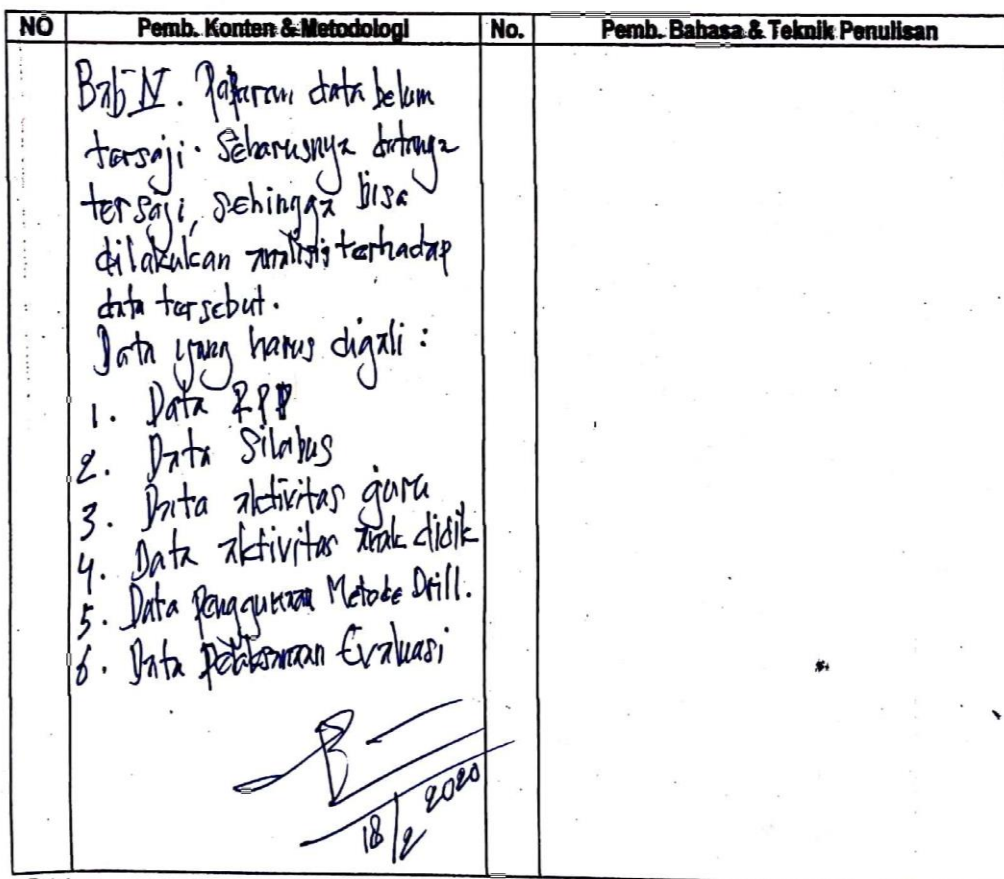 NO Pemb. Konten & Metodologi No. Pemb. Bahasa & Teknik Penulisan
Bab IV. Paparan data belum
tersaji. Seharusnya datanya
tersaji, sehingga bisa
dilakukan analisis terhadap
data tersebut.
Data yang harus digali :
1. Data RPP
2. Data Silabus
3. Data aktivitas guru
4. Data aktivitas anak didik
5. Data Penggunaan Metode Drill.
6. Data Pelaksanaan Evaluasi
18/2 2020